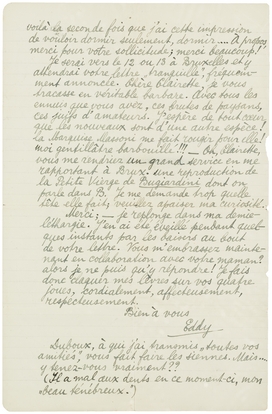 voilà la seconde fois que j'ai cette impression
de vouloir dormir seulement, dormir.... A propos
merci pour votre sollicitude; merci beaucoup!
Je serai vers le 12 ou 13 à Bruxelles et y
attendrai votre lettre, tranquille, fréquem-
ment annoncée. Chère Clairette, je vous
tracasse en véritable barbare. Avec tous les
ennuis que vous avez, ces brutes de paysans,
ces juifs d'amateurs. J'espère de tout cœur
que les nouveaux sont d'une autre espèce!
La Mievres liaisons me fait rougir pour elle!
moi gentillâtre barbouillé!!! — Oh, Clairette,
vous me rendrez un grand service en me
rapportant à Brux. une reproduction de
la Petite Vierge de Bugiardini dont on
parle dans B. Je me demande trop quelle
tête elle fait; veuillez apaiser ma curiosité.
Merci; — je replonge dans ma demie-
léthargie. J'en ai été éveillé pendant quel-
ques instants par les baisers au bout
de votre lettre. Vous m'embrassez mainte-
nant en collaboration avec votre maman?
alors je ne puis qu'y répondre! Je fais
donc claquer mes lèvres sur vos quatre
joues, cordialement, affectueusement,
respectueusement.
Bien à vous
Eddy
Duboux, à qui j'ai transmis toutes vos
amitiés, vous fait faire les siennes. Mais....
y tenez-vous vraiment??
(Il a mal aux dents en ce moment-ci, mon
beau ténébreux.)